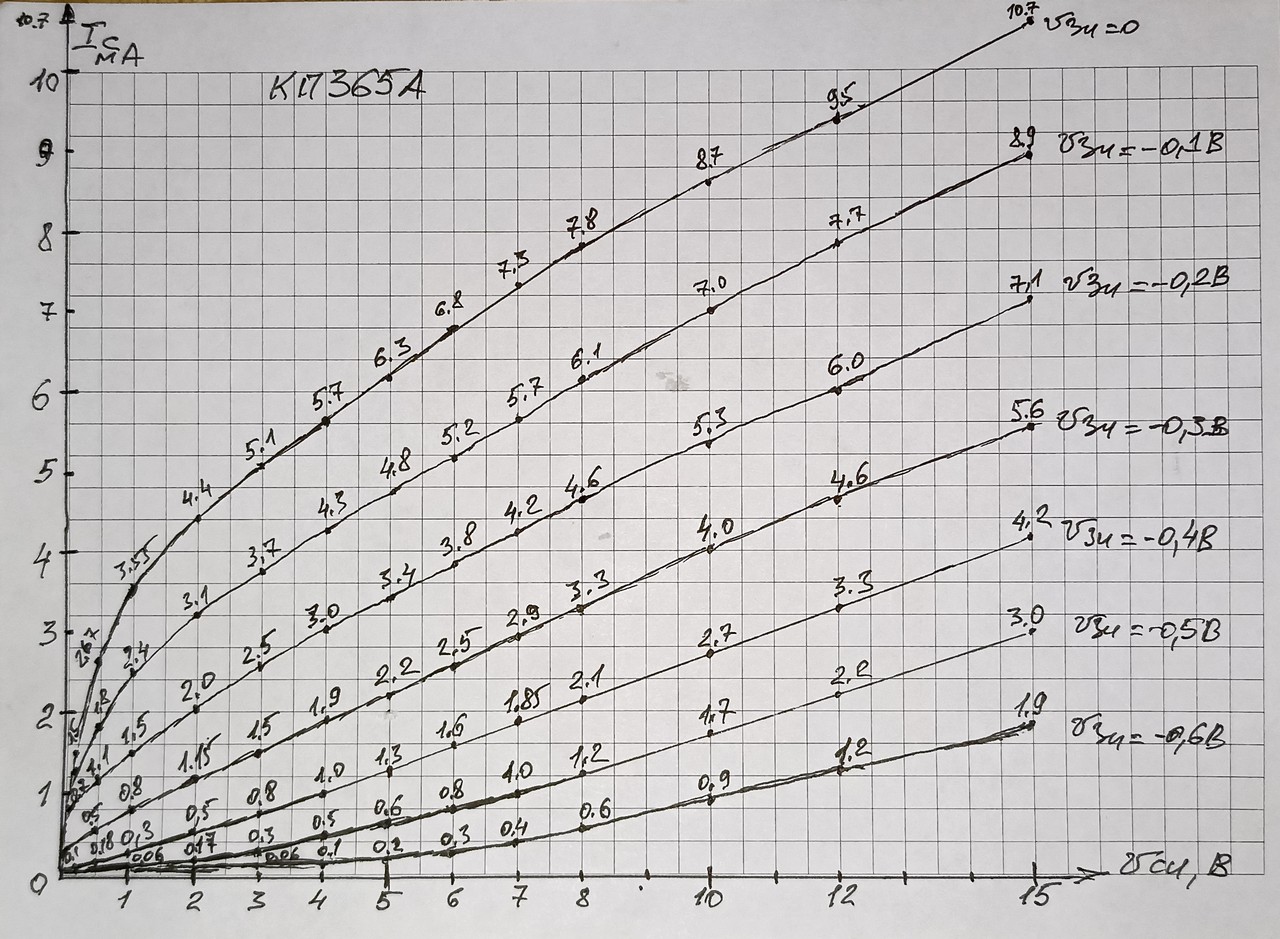 10.7
Iс
мА
КП365А
10
9
8
7
6
5
4
3
2
1
0
1 2 3 4 5 6 7 8 10 12 15
Uси, В
Uзи=0
2.67 3.55 4.4 5.1 5.7 6.3 6.8 7.3 7.8 8.7 9.5 10.7
Uзи=-0,1В
1.8 2.4 3.1 3.7 4.3 4.8 5.2 5.7 6.1 7.0 7.7 8.9
Uзи=-0,2В
1.1 1.5 2.0 2.5 3.0 3.4 3.8 4.2 4.6 5.3 6.0 7,1
Uзи=-0,3В
0.5 0.8 1.15 1.5 1.9 2.2 2.5 2.9 3.3 4.0 4.6 5.6
Uзи=-0,4В
0.18 0,3 0,5 0.8 1.0 1.3 1.6 1.85 2.1 2.7 3.3 4.2
Uзи=-0,5В
0.06 0.17 0.3 0.5 0.6 0.8 1.0 1.2 1.7 2.2 3.0
Uзи=-0,6В
0.06 0.1 0.2 0.3 0.4 0.6 0.9 1.2 1.9